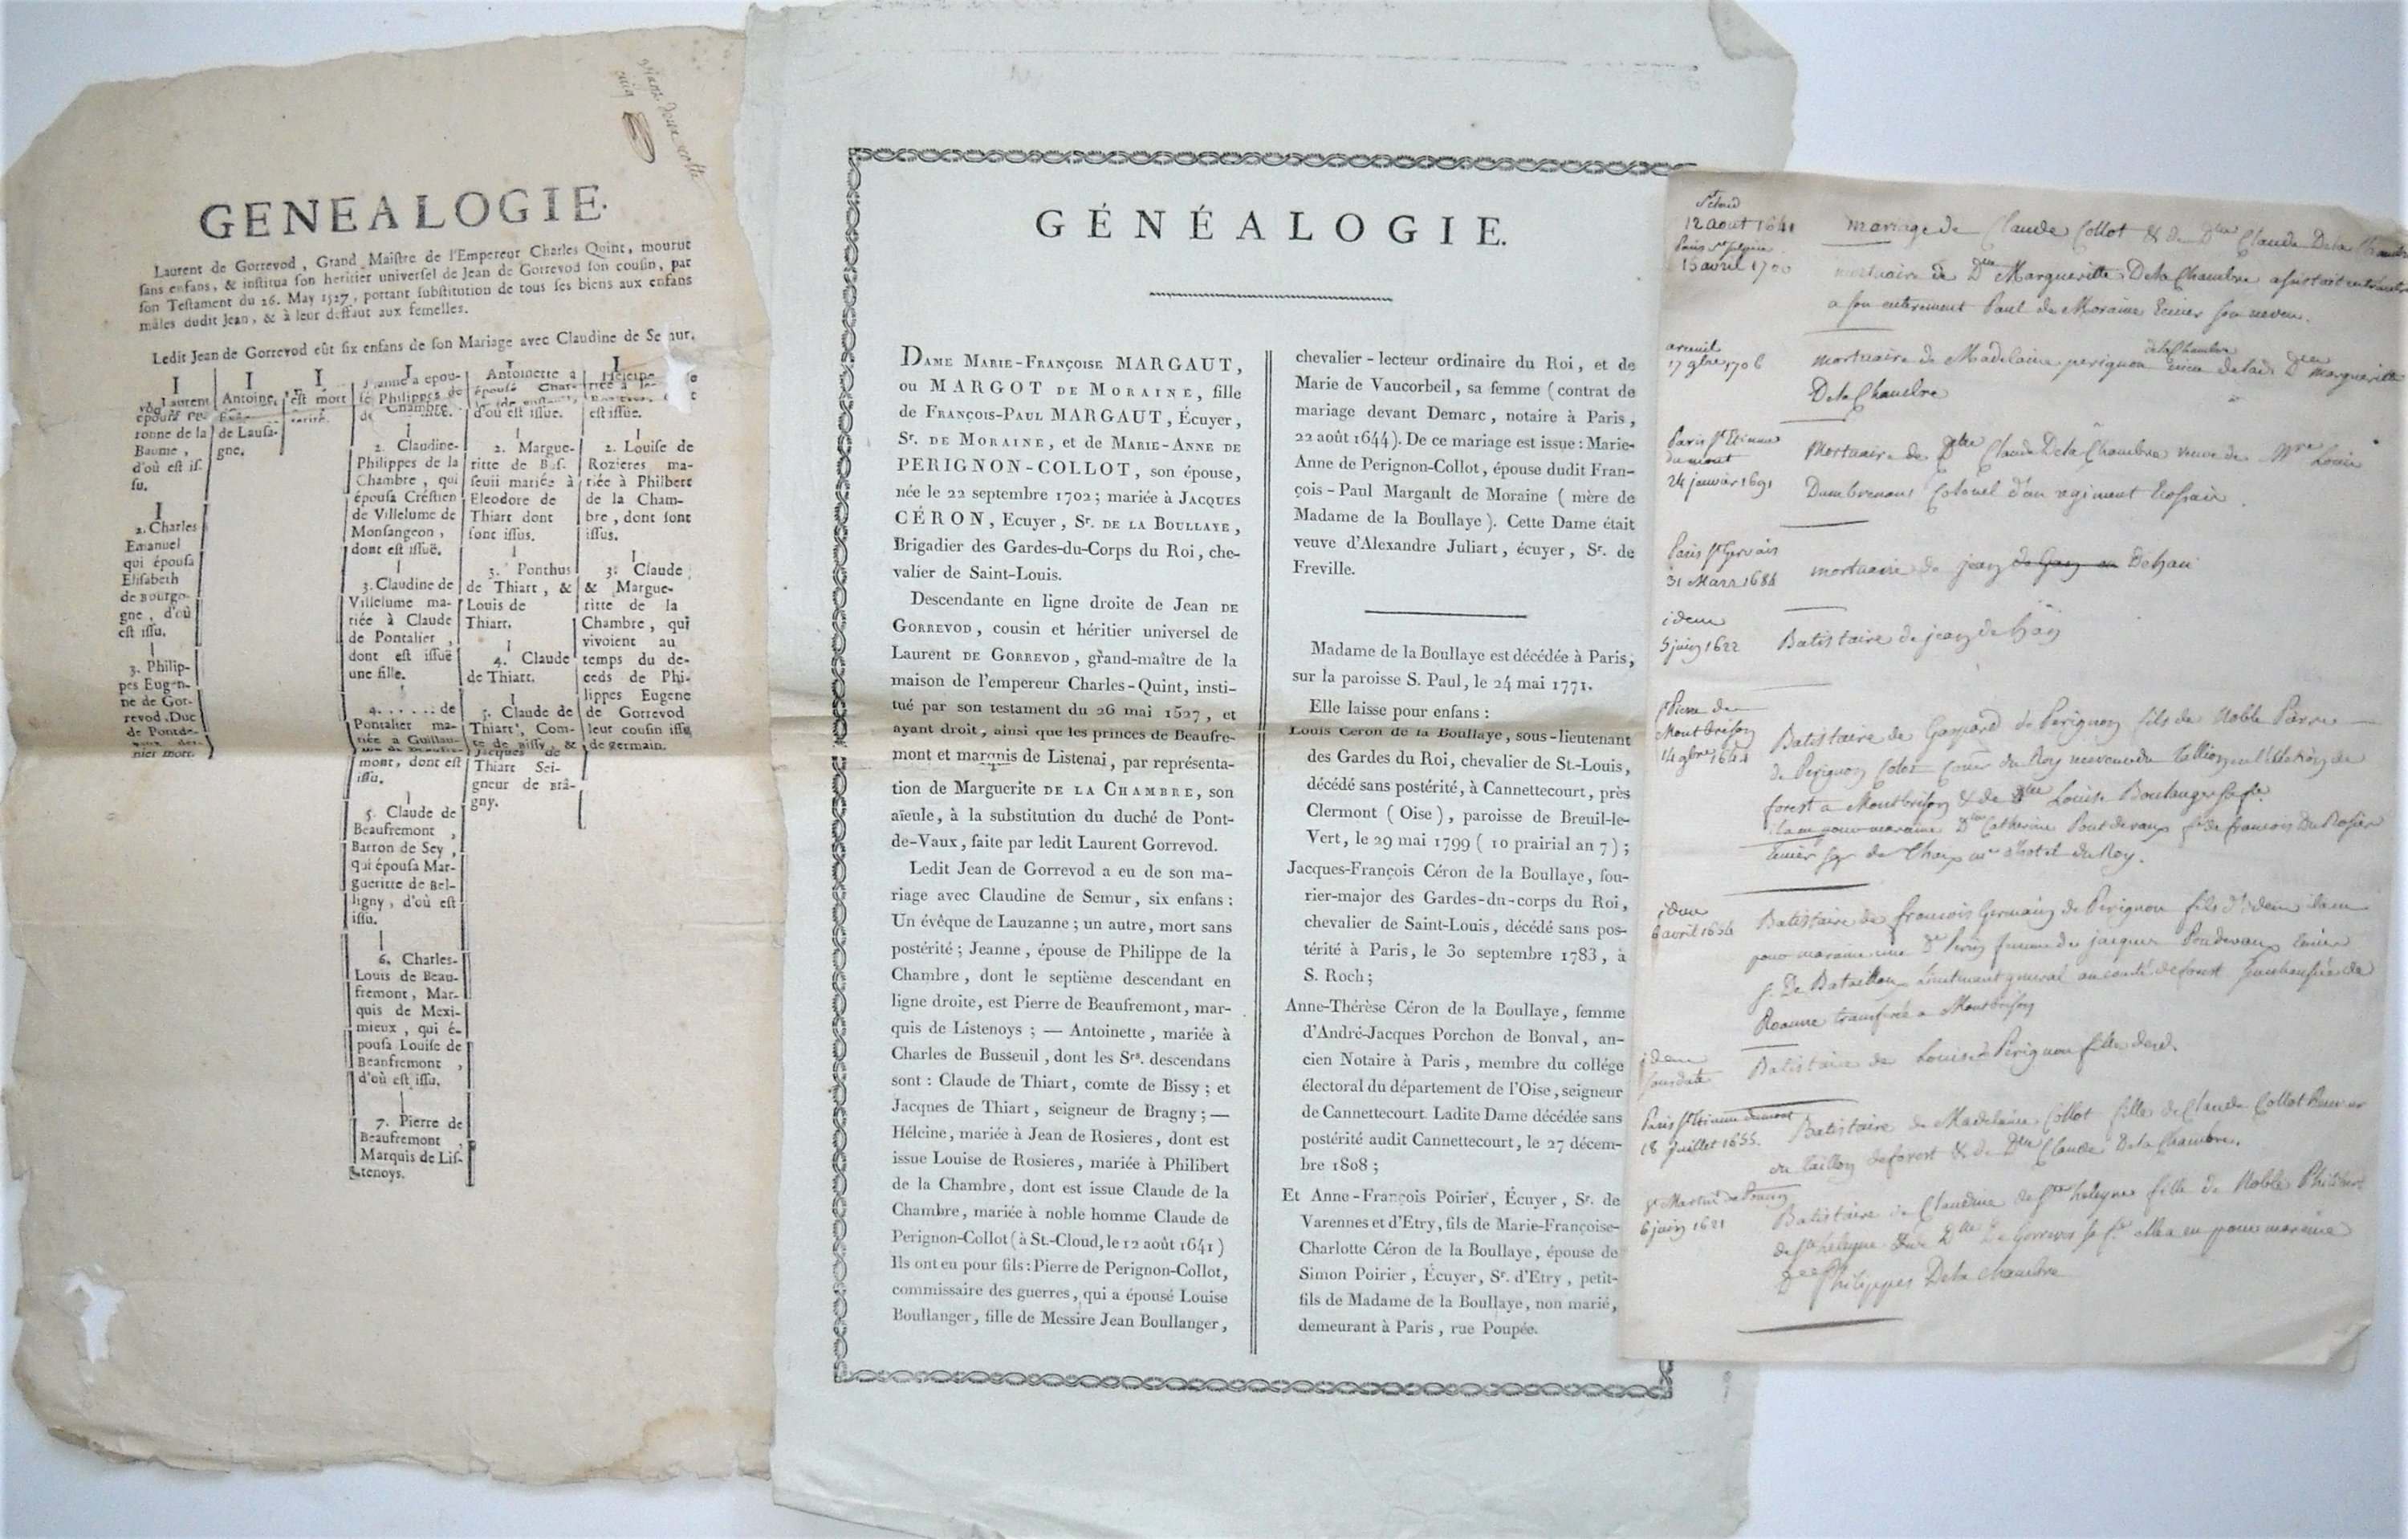 GENEALOGIE.
Laurent de Gorrevod, Grand Maistre de l'Empereur Charles Quint, mourut
sans enfans, & institua son heritier universel de Jean de Gorrevod son cousin, par
son Testament du 26. May 1527, portant substitution de tous ses biens aux enfans
mâles dudit Jean, & à leur deffaut aux femelles.
Ledit Jean de Gorrevod eût six enfans de son Mariage avec Claudine de Semur.
I
Laurent
épousa
ronne de la
Baume,
d'où est is-
su.
I
2. Charles
Emanuel
qui épousa
Elisabeth
de Bourgo-
gne, d'où
est issu.
I
3. Philip-
pes Eugen-
ne de Gor-
revod, Duc
de Pontde-
vaux der-
nier mort.
I
Antoine,
de Lausa-
gne.
I
est mort
I
Jeanne a épou-
sé Philippes de
Chambre.
I
2. Claudine-
Philippes de la
Chambre, qui
épousa Crêstien
de Villelume de
Monsangeon,
dont est issuë.
I
3. Claudine de
Villelume ma-
riée à Claude
de Pontalier,
dont est issuë
une fille.
4. . . . . . de
Pontalier ma-
riée à Guillau-
me de Beaufre-
mont, dont est
issu.
I
5. Claude de
Beaufremont,
Barron de Sey,
qui épousa Mar-
gueritte de Bel-
ligny, d'où est
issu.
I
6. Charles-
Louis de Beau-
fremont, Mar-
quis de Mexi-
mieux, qui é-
pousa Louise de
Beaufremont,
d'où est issu.
7. Pierre de
Beaufremont,
Marquis de Lis-
tenoys.
I
Antoinette a
épousé Char-
d'où est issue.
I
2. Margue-
ritte de Bus-
seuil mariée à
Eleodore de
Thiart dont
sont issus.
I
3. Ponthus
de Thiart, &
Louis de
Thiart.
I
4. Claude
de Thiart.
I
5. Claude de
Thiart, Com-
te de Bissy, &
Jacques de
Thiart Sei-
gneur de Brâ-
gny.
I
Heleine
est issue.
I
2. Louise de
Rozieres ma-
riée à Philbert
de la Cham-
bre, dont sont
issus.
I
3. Claude
& Margue-
ritte de la
Chambre, qui
vivoient au
temps du de-
ceds de Phi-
lippes Eugene
de Gorrevod
leur cousin issu
de germain.
GÉNÉALOGIE.
DAME MARIE-FRANÇOISE MARGAUT,
ou MARGOT DE MORAINE, fille
de FRANÇOIS-PAUL MARGAUT, Écuyer,
Sr. DE MORAINE, et de MARIE-ANNE DE
PERIGNON-COLLOT, son épouse,
née le 22 septembre 1702; mariée à JACQUES
CÉRON, Ecuyer, Sr. DE LA BOULLAYE,
Brigadier des Gardes-du-Corps du Roi, che-
valier de Saint-Louis.
Descendante en ligne droite de Jean DE
GORREVOD, cousin et héritier universel de
Laurent DE GORREVOD, grand-maître de la
maison de l'empereur Charles-Quint, insti-
tué par son testament du 26 mai 1527, et
ayant droit, ainsi que les princes de Beaufre-
mont et marquis de Listenai, par représenta-
tion de Marguerite DE LA CHAMBRE, son
aïeule, à la substitution du duché de Pont-
de-Vaux, faite par ledit Laurent Gorrevod.
Ledit Jean de Gorrevod a eu de son ma-
riage avec Claudine de Semur, six enfans:
Un évêque de Lauzanne; un autre, mort sans
postérité; Jeanne, épouse de Philippe de la
Chambre, dont le septième descendant en
ligne droite, est Pierre de Beaufremont, mar-
quis de Listenoys; — Antoinette, mariée à
Charles de Busseuil, dont les Srs. descendans
sont: Claude de Thiart, comte de Bissy; et
Jacques de Thiart, seigneur de Bragny; —
Héleine, mariée à Jean de Rosieres, dont est
issue Louise de Rosieres, mariée à Philibert
de la Chambre, dont est issue Claude de la
Chambre, mariée à noble homme Claude de
Perignon-Collot (à St.-Cloud, le 12 août 1641)
Ils ont eu pour fils: Pierre de Perignon-Collot,
commissaire des guerres, qui a épousé Louise
Boullanger, fille de Messire Jean Boullanger,
chevalier-lecteur ordinaire du Roi, et de
Marie de Vaucorbeil, sa femme (contrat de
mariage devant Demarc, notaire à Paris,
22 août 1644). De ce mariage est issue: Marie-
Anne de Perignon-Collot, épouse dudit Fran-
çois-Paul Margault de Moraine (mère de
Madame de la Boullaye). Cette Dame était
veuve d'Alexandre Juliart, écuyer, Sr. de
Freville.
Madame de la Boullaye est décédée à Paris,
sur la paroisse S. Paul, le 24 mai 1771.
Elle laisse pour enfans:
Louis Céron de la Boullaye, sous-lieutenant
des Gardes du Roi, chevalier de St.-Louis,
décédé sans postérité, à Cannettecourt, près
Clermont (Oise), paroisse de Breuil-le-
Vert, le 29 mai 1799 (10 prairial an 7);
Jacques-François Céron de la Boullaye, fou-
rier-major des Gardes-du-corps du Roi,
chevalier de Saint-Louis, décédé sans pos-
térité à Paris, le 30 septembre 1783, à
S. Roch;
Anne-Thérèse Céron de la Boullaye, femme
d'André-Jacques Porchon de Bonval, an-
cien Notaire à Paris, membre du collége
électoral du département de l'Oise, seigneur
de Cannettecourt. Ladite Dame décédée sans
postérité audit Cannettecourt, le 27 décem-
bre 1808;
Et Anne-François Poirier, Écuyer, Sr. de
Varennes et d'Etry, fils de Marie-Françoise-
Charlotte Céron de la Boullaye, épouse de
Simon Poirier, Écuyer, Sr. d'Etry, petit-
fils de Madame de la Boullaye, non marié,
demeurant à Paris, rue Poupée.
St Cloud
12 aout 1641 mariage de Claude Collot & de Dlle Claude Dela Chambre
15 avril 1700 mortuaire de Dlle Margueritte Dela Chambre
a son enterement Paul de Moraine Ecuier son neveu.
arcueil
17 9bre 1706 mortuaire de Madelaine perignon
Dela Chambre
Paris St Etienne
du mont
24 janvier 1691 Mortuaire de Dlle Claude Dela Chambre veuve de Mre Louis
Colonel d'un regiment Ecossais.
Paris St Gervais
31 Mars 1684 mortuaire de jean
idem
5 juin 1622 Batistaire de jean de
St Pierre de
Montbrison
14 9bre 1644 Batistaire de Gaspard de Perignon fils de Noble Pierre
de Perignon
forest a Montbrison & de Dlle Louise Boulanger sa fe.
idem
6 avril 1654 Batistaire de francois Germain de Perignon fils
Roanne transferé a Montbrison
idem
Batistaire de Louise Perignon fille
Paris St Etienne dumont
18 Juillet 1655. Batistaire de Madelaine Collot fille de Claude Collot
du taillon de forest & de Dlle Claude Dela Chambre.
6 juin 1621 Batistaire de Claudine de fille de Noble Philibert
elle a eu pour mareine
Philippes Dela Chambre